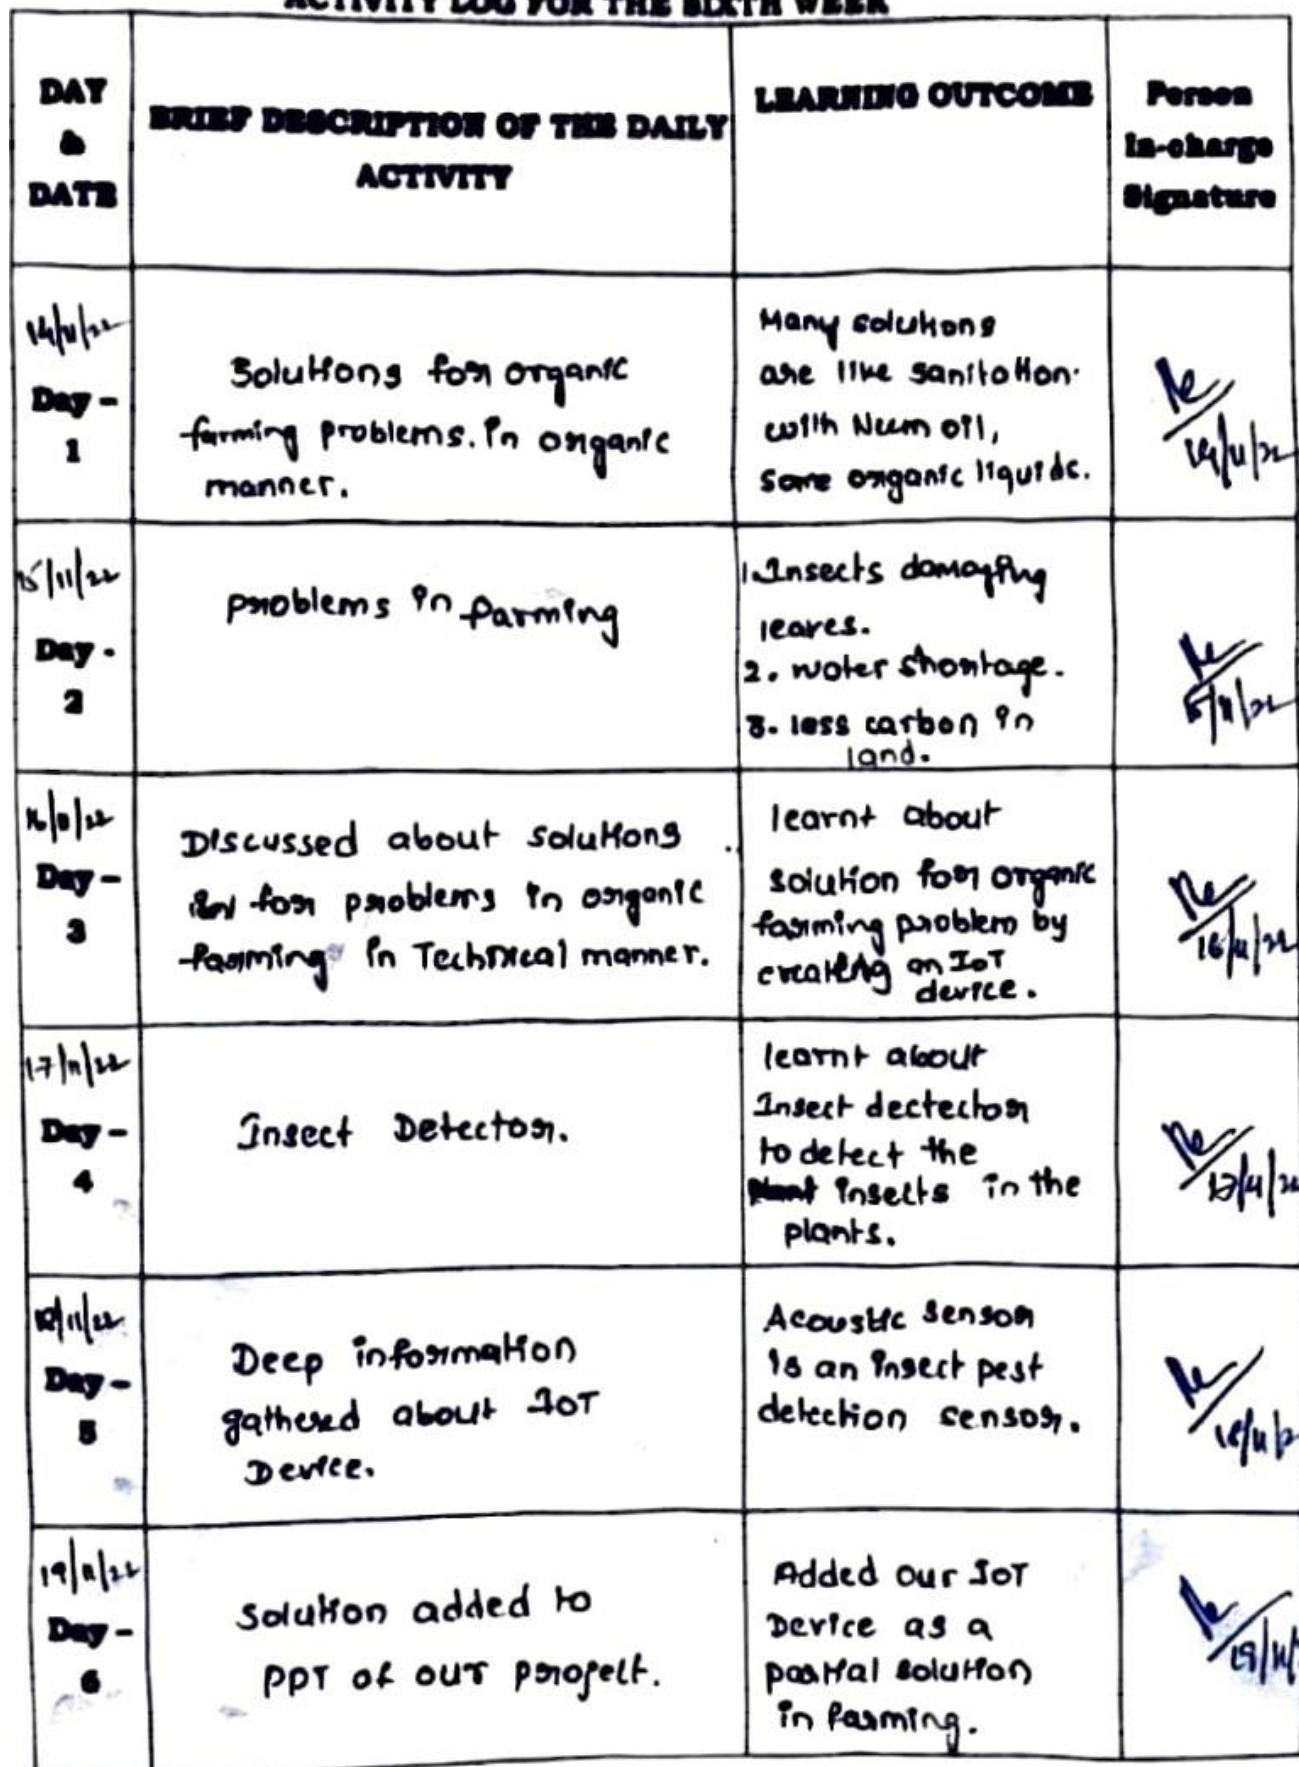 ACTIVITY LOG FOR THE SIXTH WEEK
DAY
&
DATE
BRIEF DESCRIPTION OF THE DAILY
ACTIVITY
LEARNING OUTCOME
Person
In-charge
Signature
14/11/22
Day -
1
Solutions for organic
farming problems. in organic
manner.
Many solutions
are like sanitation.
with Neem oil,
some organic liquids.
14/11/22
15/11/22
Day -
2
problems in farming
1. Insects damaging
leaves.
2. water shortage.
3. less carbon in
land.
15/11/22
16/11/22
Day -
3
Discussed about solutions
for problems in organic
farming in Technical manner.
learnt about
solution for organic
farming problem by
creating an IoT
device.
16/11/22
17/11/22
Day -
4
Insect Detector.
learnt about
Insect dectector
to detect the
plant insects in the
plants.
17/11/22
18/11/22
Day -
5
Deep information
gathered about IoT
Device.
Acoustic sensor
is an insect pest
detection sensor.
18/11/2
19/11/22
Day -
6
Solution added to
PPT of our project.
Added our IoT
Device as a
partial solution
in farming.
19/11/